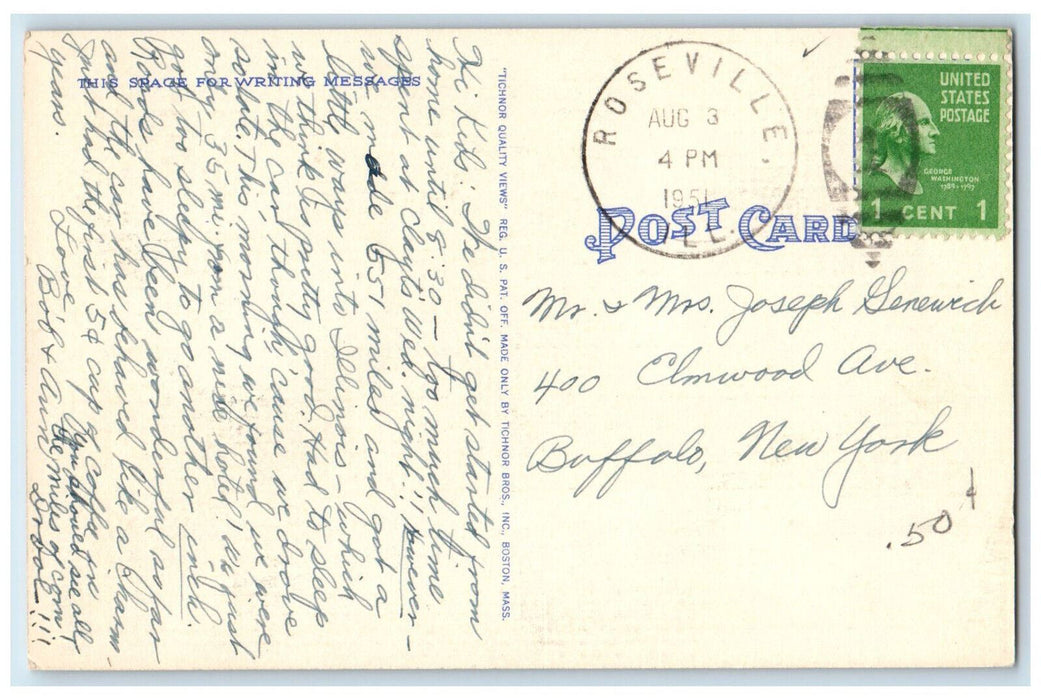 THIS SPACE FOR WRITING MESSAGES
Hi Kids: We didn't get started from
home until 5:30 – too much time
spent at Clayt's Wed. night!! However –
we made 651 miles and got a
little ways into Illinois – which
we think is purty good. Had to sleep
in the car though, 'cause we drove
so late. This morning we found we were
only 35 mi. from a nice hotel! Was just
too sleepy to go another inch.
Roads have been wonderful so far
and the car has behaved like a charm –
Just had the first 5¢ cup of coffee in
years.
Love,
Bob &
You should see all
the miles of corn,
Drool!!!
"TICHNOR QUALITY VIEWS" REG. U. S. PAT. OFF. MADE ONLY BY TICHNOR BROS., INC., BOSTON, MASS.
ROSEVILLE
AUG 3
4 PM
1951
ILL.
UNITED
STATES
POSTAGE
GEORGE
WASHINGTON
1789-1797
1 CENT 1
POST CARD
Mr. & Mrs. Joseph Genewich
400 Elmwood Ave.
Buffalo, New York
.50